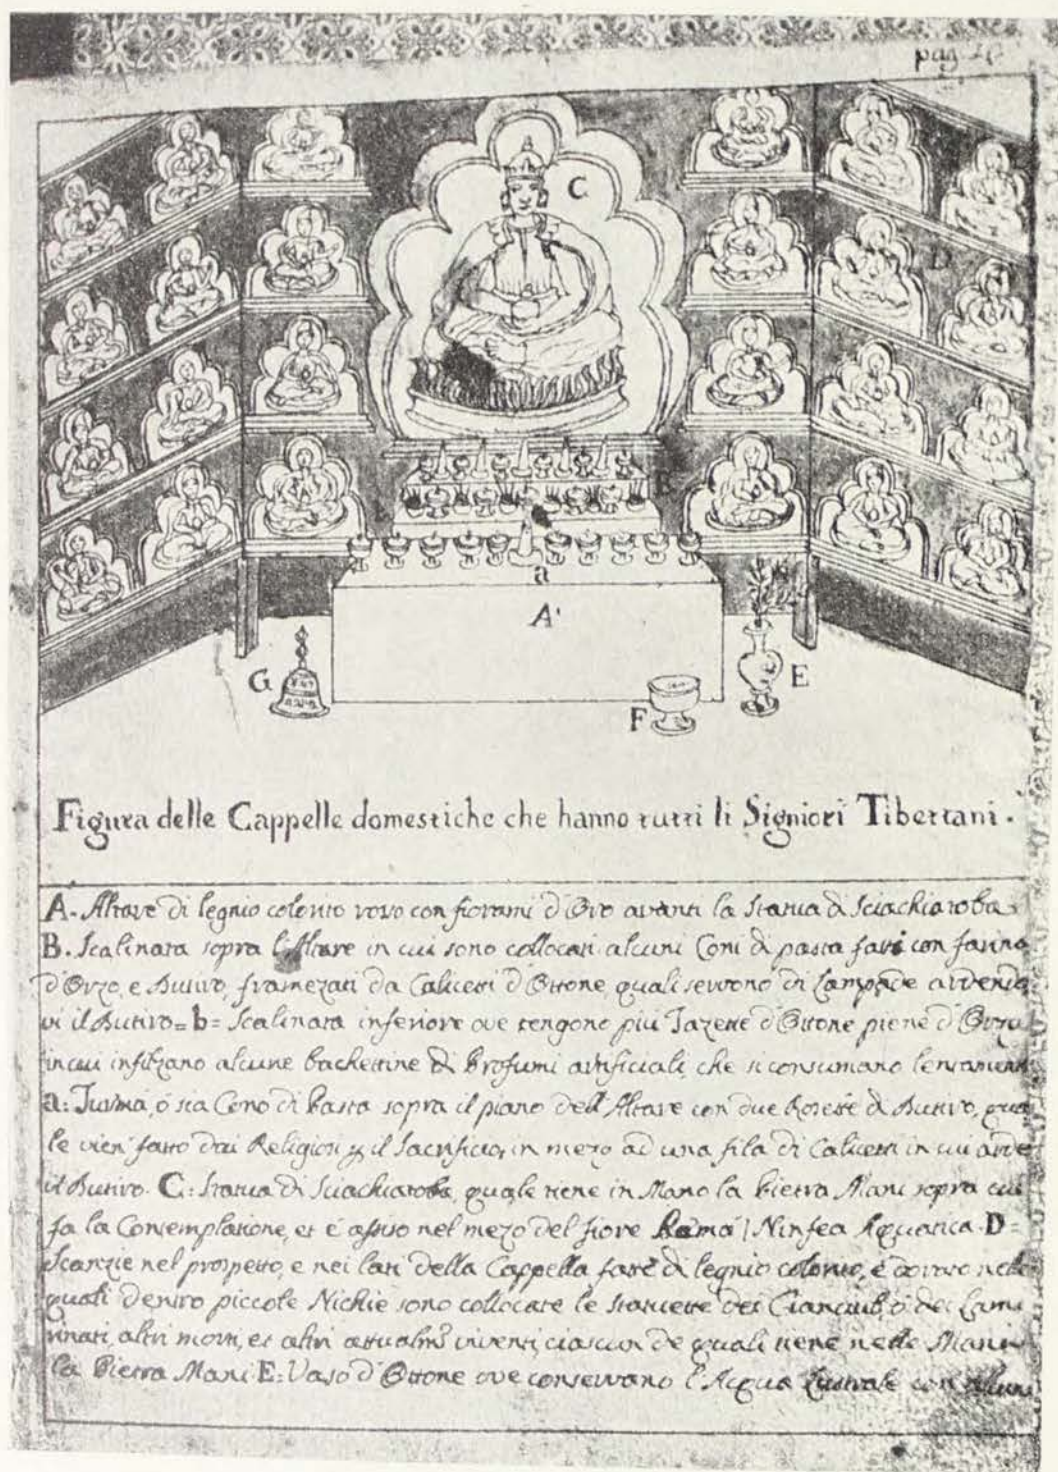 pag.
C
D
B
a
A
G
E
F
Figura delle Cappelle domestiche che hanno tutti li Signiori Tibettani.
A. Altare di legnio colorito roso con fiorami d'Oro avanti la Statua di Sciachiatoba
B. Scalinata sopra l'Altare in cui sono collocati alcuni Coni di pasta fati con farina
d'Orzo, e Butiro, framezati da Calicetti d'Ottone, quali servono di Lampade ardendo
vi il Butiro = b = Scalinata inferiore ove tengono più Tazette d'Ottone piene d'Orzo
in cui infilzano alcune bachettine di Profumi artificiali, che si consumano lentamente
a: Turmá, ó sia Cono di Pasta sopra il piano dell'Altare con due Rosette di Butiro, qua
le vien fatto dai Religiosi p il Sacrificio, in mezo ad una fila di Calicetti in cui arde
il Butiro. C: Statua di Sciachiatoba, quale tiene in Mano la Pietra Mani sopra cui
fa la Contemplatione, et é assiso nel mezo del fiore Pemá / Ninfea Aquatica D=
Scanzie nel prospetto, e nei lati della Cappella fate di legnio colorito, é dorato nelle
quali dentro piccole Nichie sono collocate le statuette dei Cianciub, ó dei Lami
rinati, altri morti, et altri attualmᵉ viventi, ciascun de quali tiene nelle Mani
la Pietra Mani. E: Vaso d'Ottone ove conservano l'Acqua Lustrale con alcuni